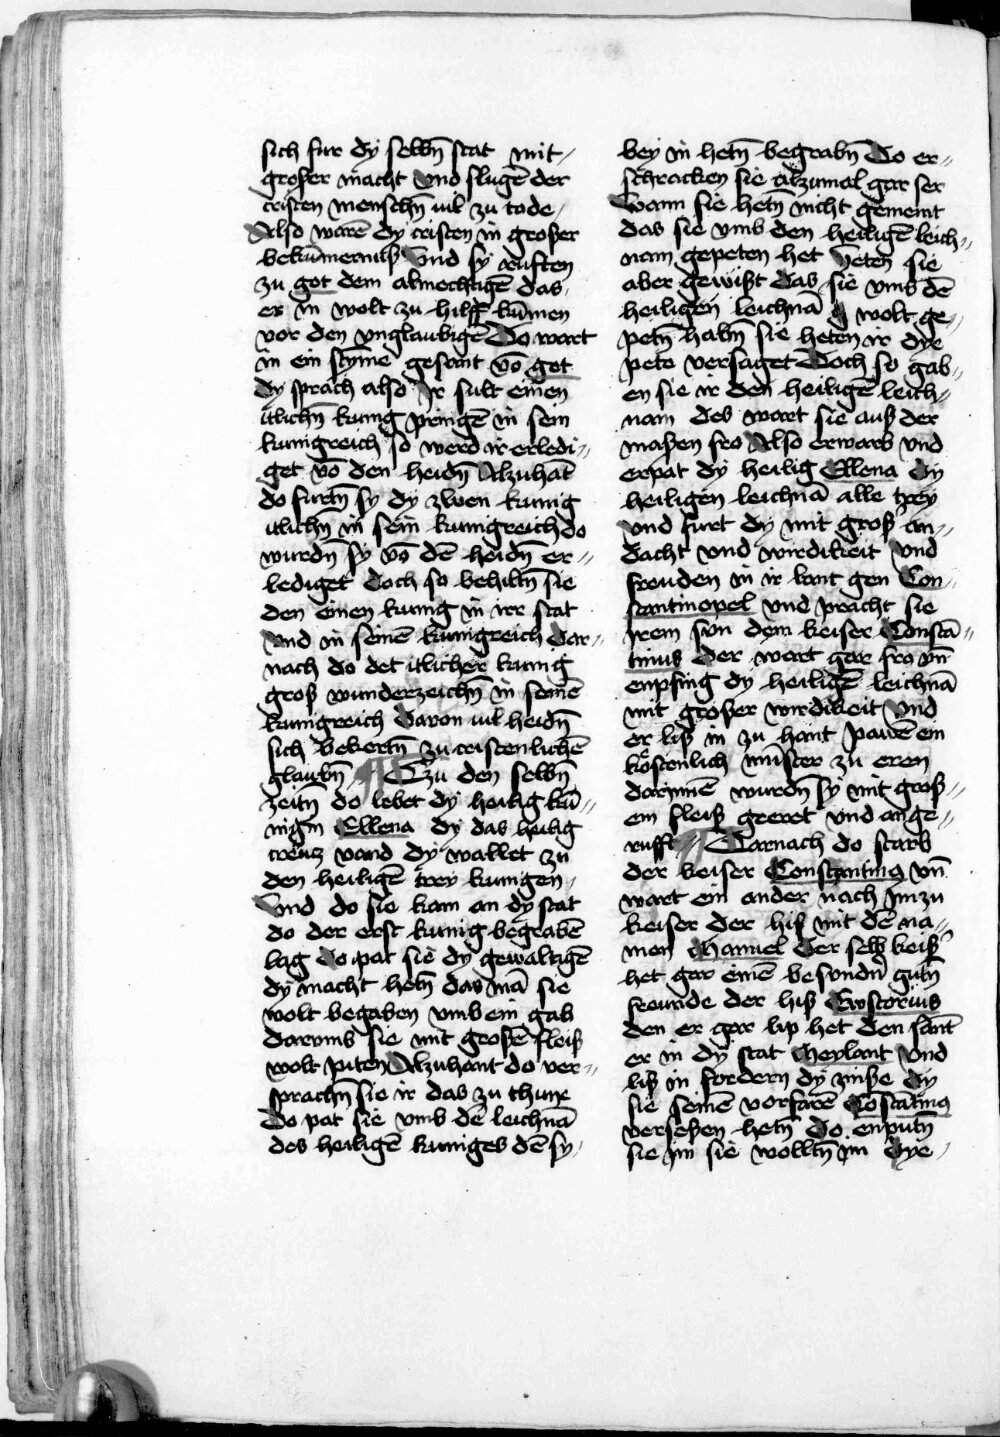 sich fur dÿ selbñ stat mit
großer macht Vnd slugē der
cristen menschñ uil zu tode
Also warē dÿ cristen in großer
bekum̄ernuß Vnd sÿ rufften
zu got dem almechtigē das
er in wolt zu hilff kūmen
vor den vnglaubigē Do wart
in ein styme gesant vō got
dÿ sprach also Ir sult einen
itlichñ kunig pringē in sein
kunigreich so werd ir erledi〃
get vō den heidñ Alzuhāt
do furtñ sÿ dÿ zwen kunig
itlichñ in sein kunigreich do
wurdñ sÿ vō dē heidñ er〃
lediget Doch so behiltñ sie
den einen kunig in irr stat
Vnd in seinē kunigreich Dar〃
nach do det itlicher kunig
groß wunderzeichñ in seinē
kunigreich Davon uil heidñ
sich bekertñ zu cristenlichē
glaubñ ¶ Czu den selbñ
zeitñ do lebet dÿ heilig kū〃
nigin Ellena dÿ das heilig
creucz vand dÿ wallet zu
den heiligē trey kunigen
Vnd do sie kam an dÿ stat
do der erst kunig begrabē
lag Do pat sie dÿ gewaltigē
dÿ macht hetñ das mā sie
wolt begaben vmb ein gab
darvmb sie mit großē fleiß
wolt piten Alzuhant do ver〃
sprachñ sie ir das zu thune
Do pat sie vmb dē leichnā
des heiligē kuniges dē sÿ
bey in hetñ begrabñ Do er〃
schracken sie alzumal gar ser
Wann sie hetñ nicht gemeint
das sie vmb den heiligē leich〃
nam gepeten het Heten sie
aber gewißt das sie vmb dē
heiligen leichnā wolt ge〃
petñ habñ sie heten ir dye
pete versaget Doch so gab〃
en sie ir den heiligē leich〃
nam des wart sie auß der
maßen fro Also erwarb vnd
erpat dÿ heilig Ellena dÿ
heiligen leichnā alle trey
Vnd furt dÿ mit großˀ an〃
dacht vnd wirdikeit Vnd
freuden in ir lant gen Con〃
stantinopel vnd pracht sie
irem sun dem keiser Constā〃
tinus Der wart gar fro vñ
enpfing dÿ heiligē leichnā
mit großer wirdikeit Vnd
er liß in zu hant pawē ein
köstenlich münster zu eren
darynnē wurdñ sÿ mit groß〃
em fleiß geeret vnd ange〃
rufft ¶ Darnach do starb
der keiser Constantinꝰ vñ
wart ein ander nach im zu
keiser der hiß mit dē na〃
men Manuel Der selb keißˀ
het gar einē besundñ gutñ
freunde der hiß Eustorius
den er gar lip het den sant
er in dÿ stat Meylant Vnd
liß in fordern dÿ zinße dÿ
sie seinē vorfarē Cōstatinꝰ
verseßen hetñ Do enputñ
sie im sie wolltñ im dye